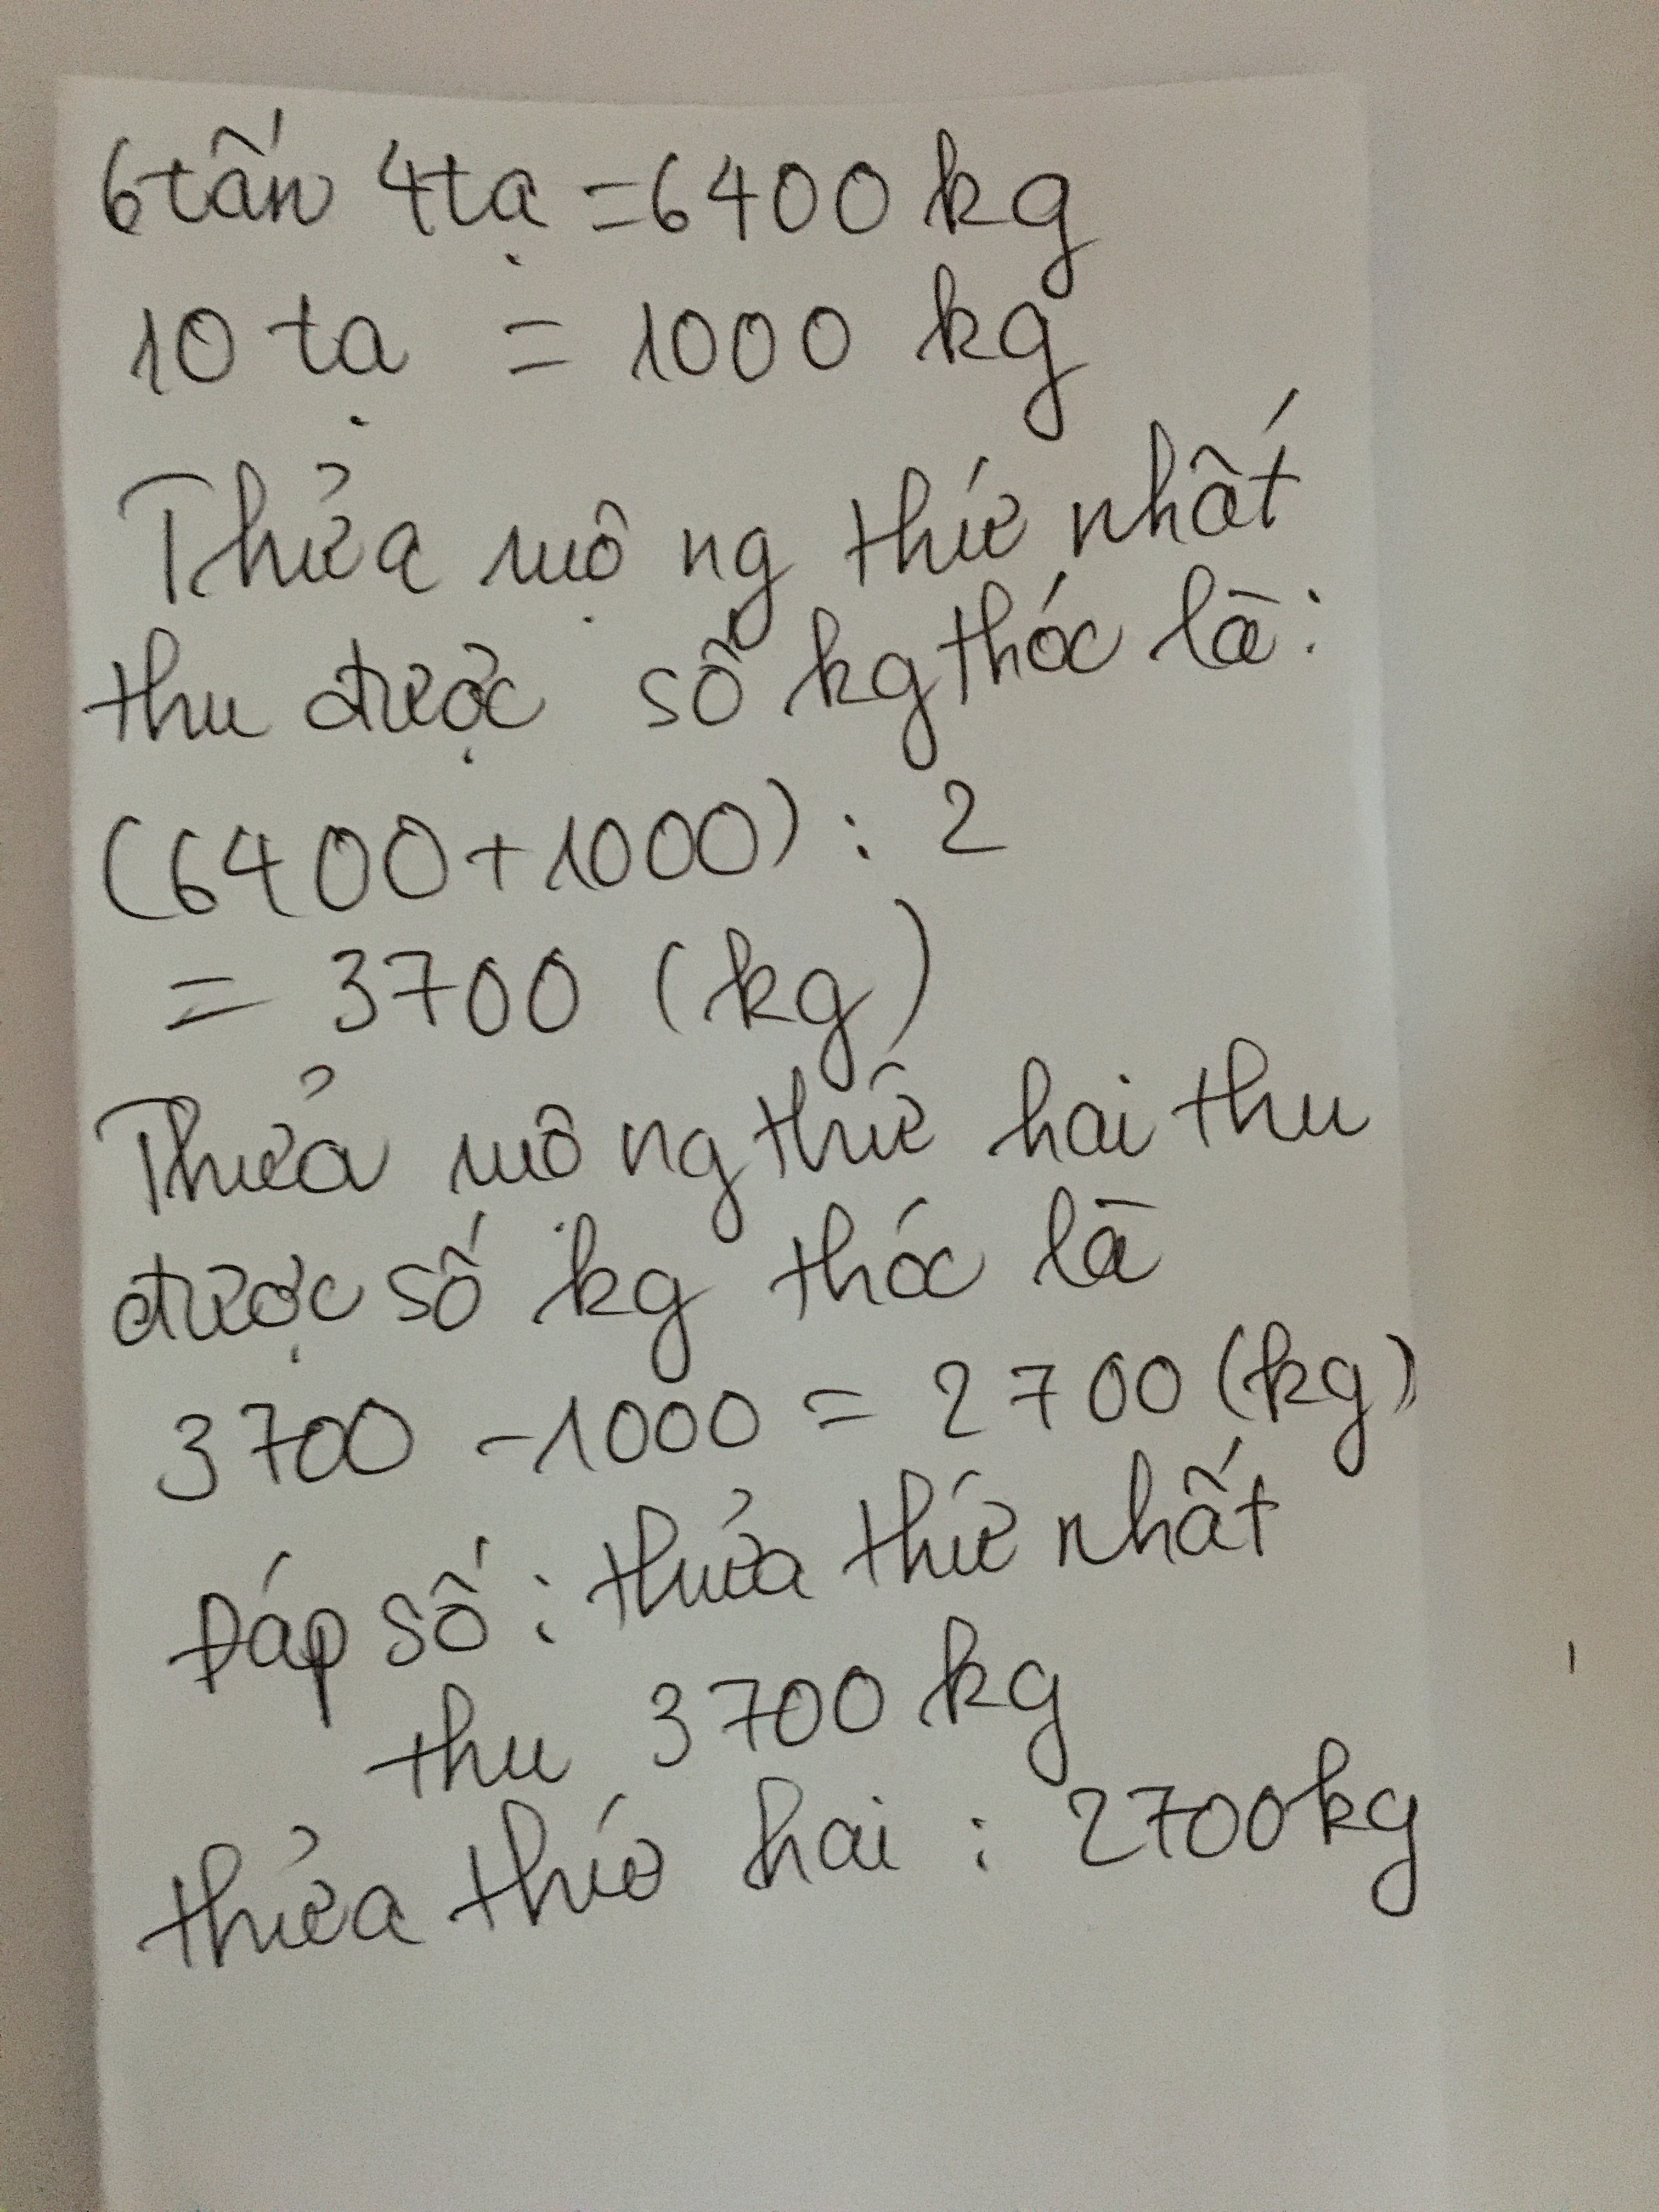 6 tấn 4 tạ = 6400 kg
10 tạ = 1000 kg
Thửa ruộng thứ nhất
thu được số kg thóc là:
(6400 + 1000) : 2
= 3700 (kg)
Thửa ruộng thứ hai thu
được số kg thóc là
3700 - 1000 = 2700 (kg)
Đáp số : thửa thứ nhất
thu 3700 kg
thửa thứ hai : 2700 kg